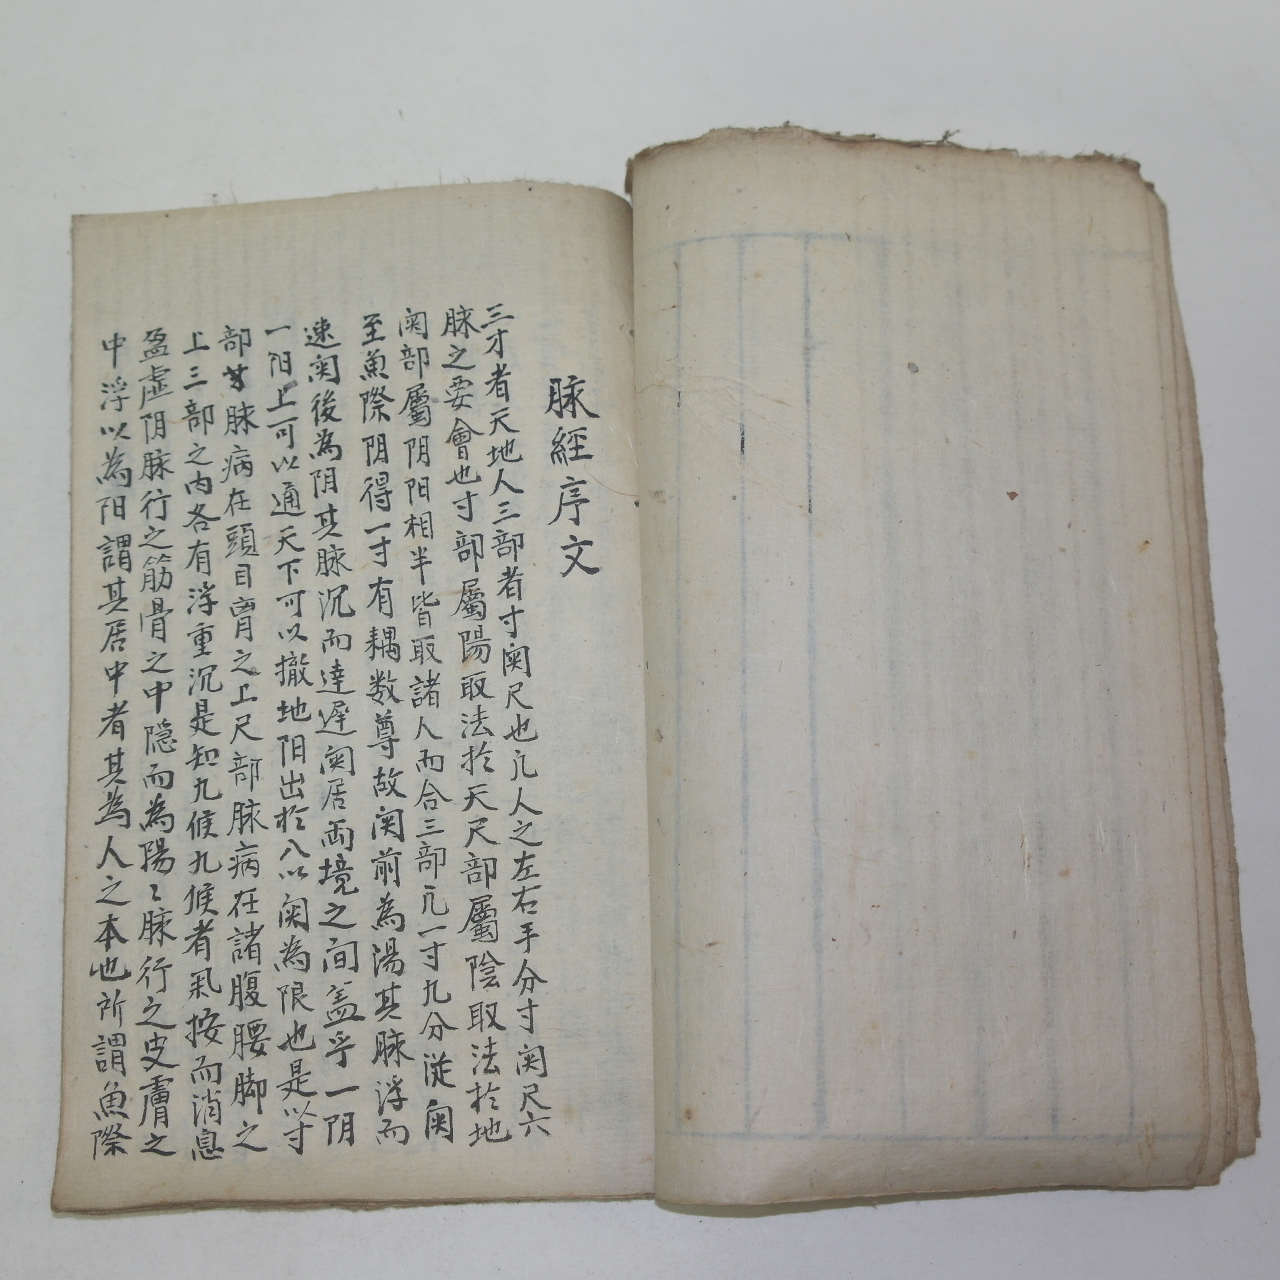 脉經序文
三才者天地人三部者寸関尺也凢人之左右手分寸関尺六
脉之要會也寸部屬陽取法於天尺部屬陰取法於地
関部屬阴阳相半皆取諸人而合三部凢一寸九分従関
至魚際阴得一寸有耦数尊故関前為湯其脉浮而
速関後為阴其脉沉而達遅関居両境之间盖乎一阴
一阳上可以通天下可以撤地阳出於八以関為限也是以寸
部脉病在頭目胷之上尺部脉病在諸腹腰脚之
上三部之内各有浮重沉是知九候九候者氣按而消息
盈虛阴脉行之筋骨之中隠而為陽〻脉行之皮膚之
中浮以為阳謂其居中者其為人之本也所謂魚際